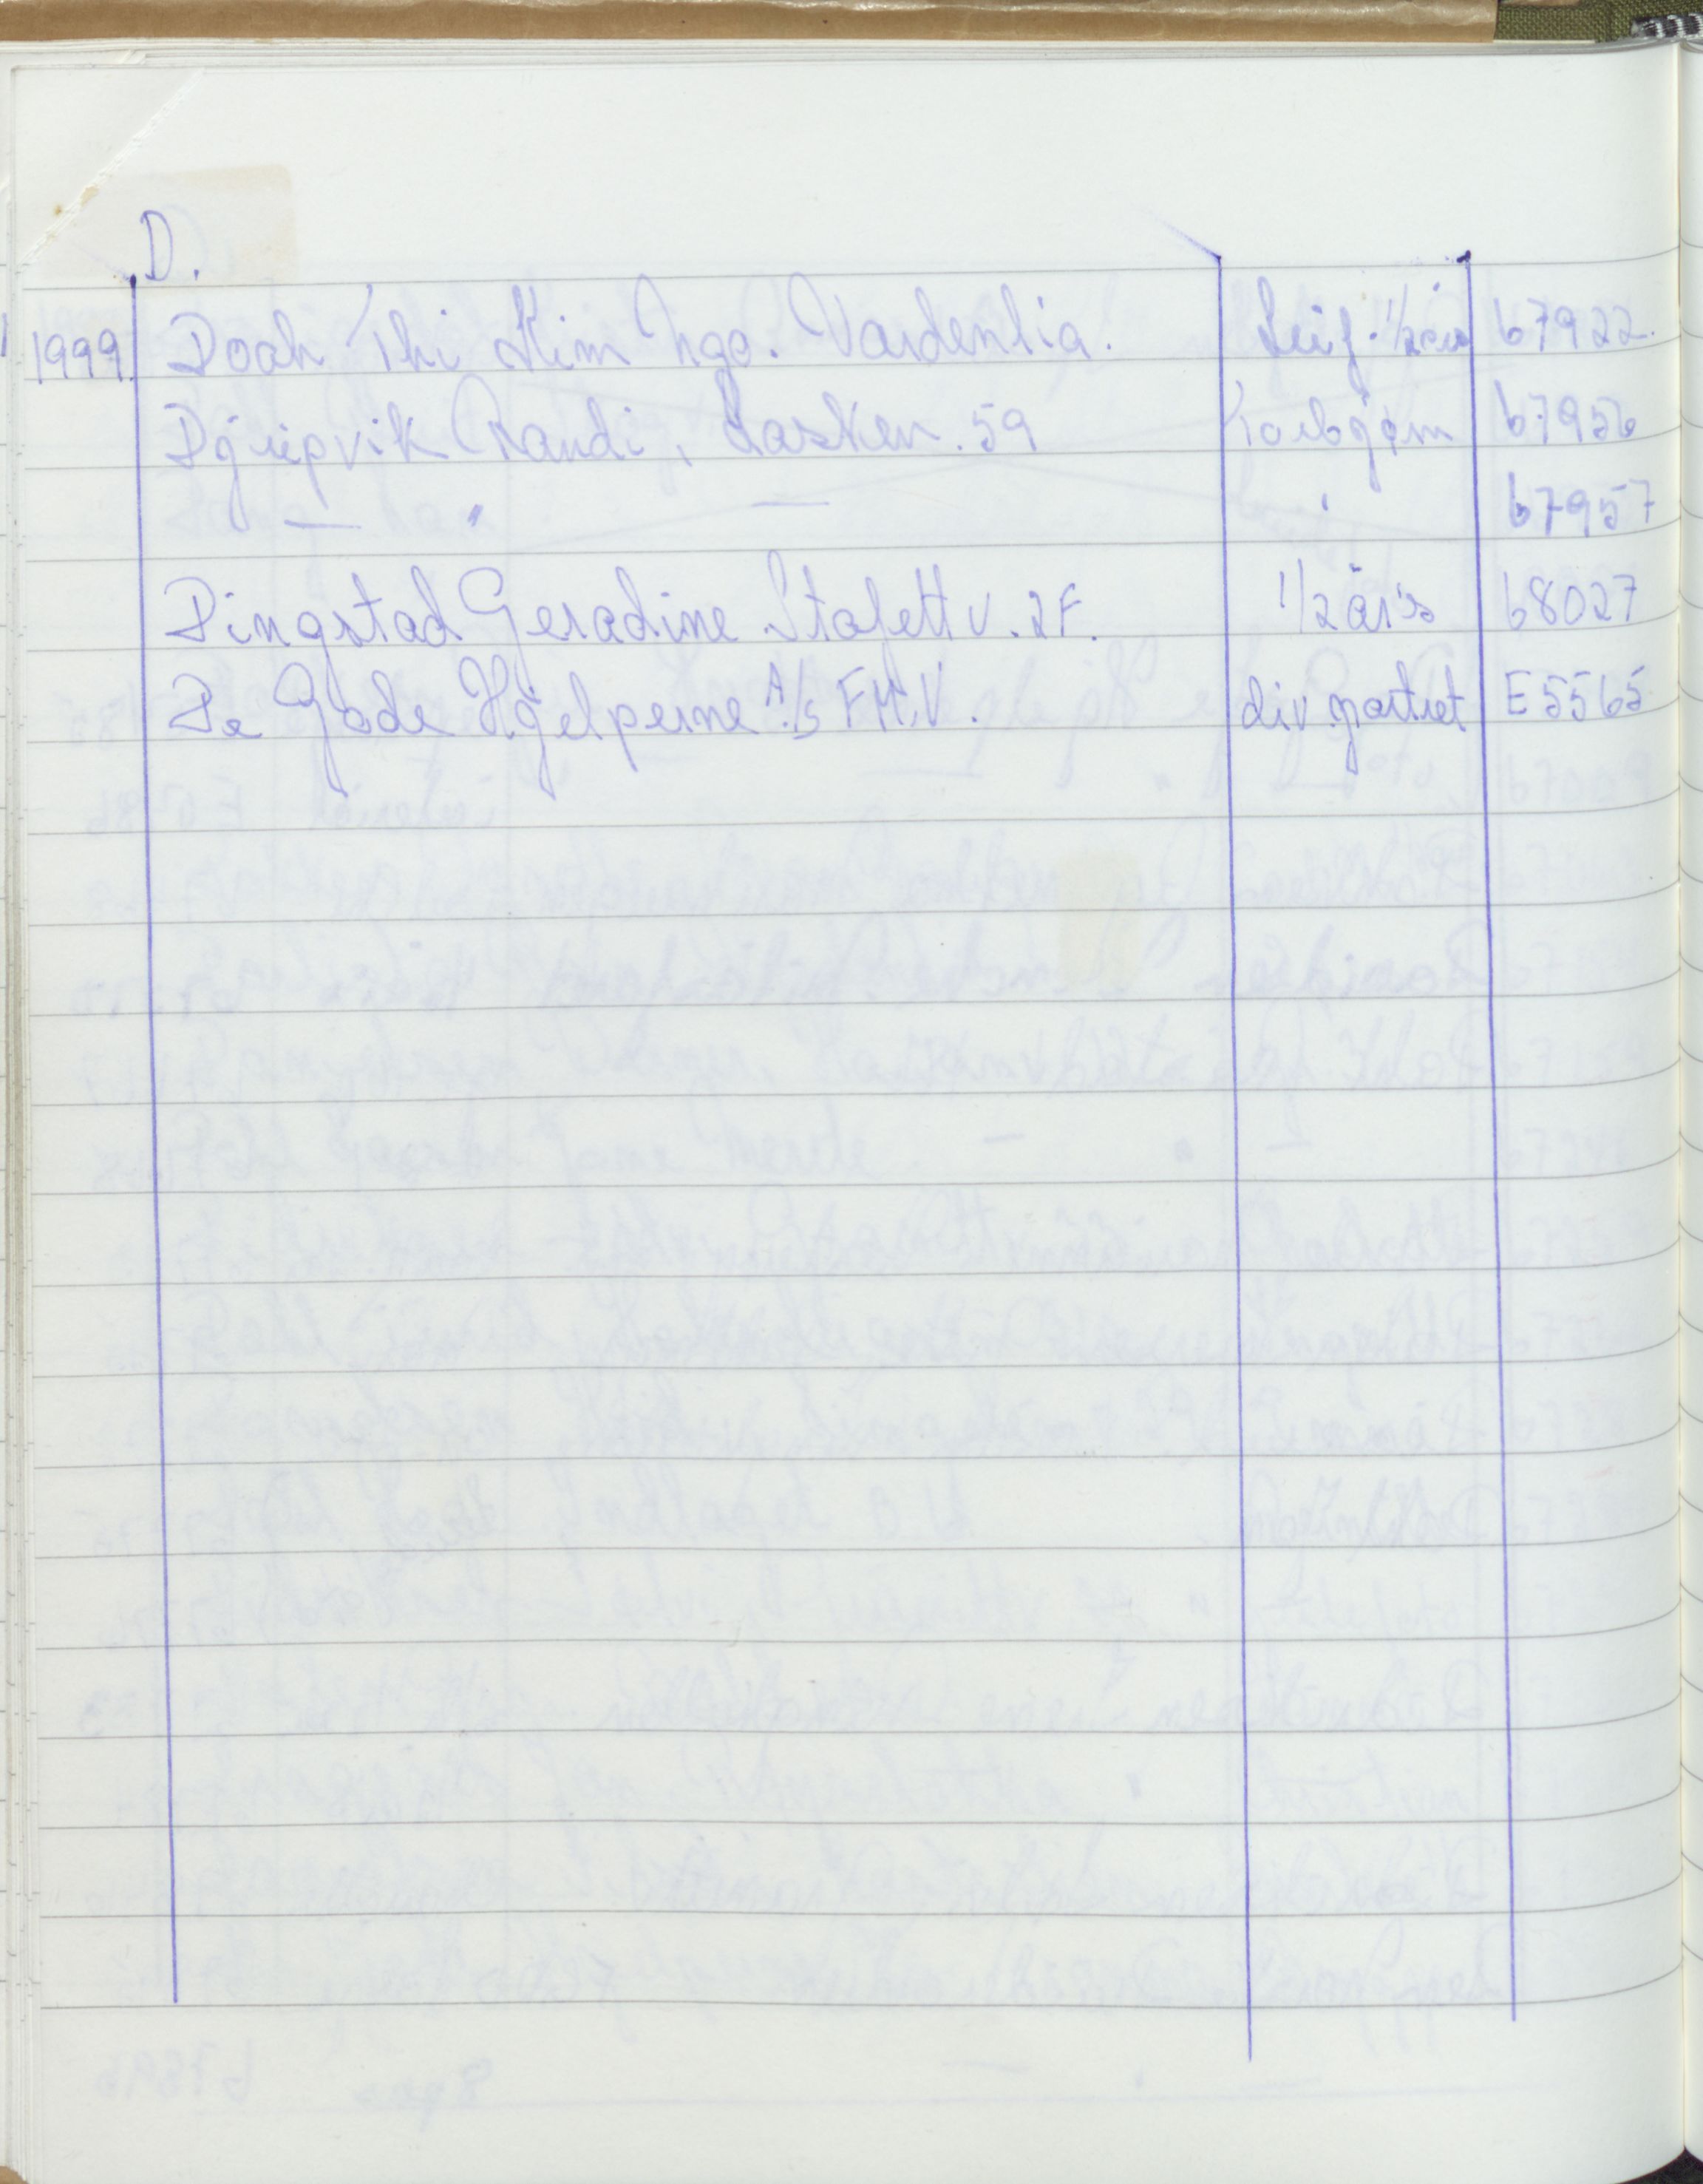 D.
1999. Doah Thi Kim Ngo. Vardenlia. 67922.
Djupvik Randi, Lasken. 59 67956
— " — " 67957
Dingstad Geradine Stafett v. 2F. 1/2 års 68027
De Gode Hjelperne A/S FH.V. div. portret E5565